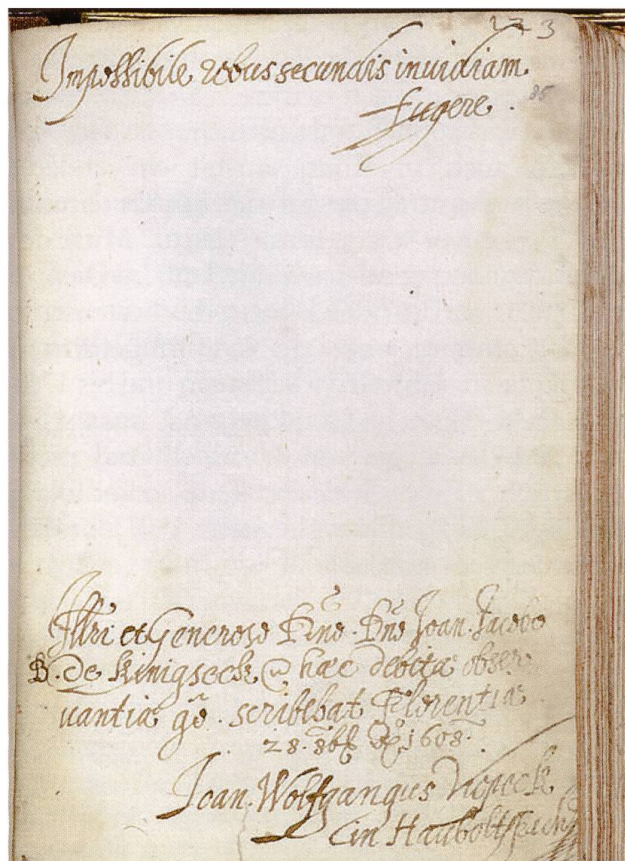 223
Impossibile rebus secundis inuidiam
fugere.
85
Illri et Generoso Dno. Dno Joan. Jacobo
B. de Kinigseck hæc debitæ obser
uantiæ gō. scribebat Florentiæ
28. 8bf Ao 1608.
Joan. Wolfgangus
in